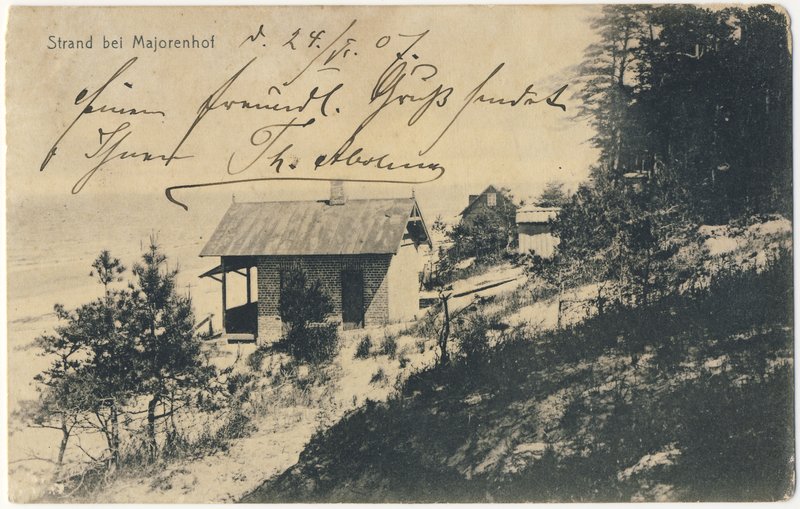 Strand bei Majorenhof
d. 24./VI. 07
Einen freundl. Gruß sendet
Ihnen Th. Abolin